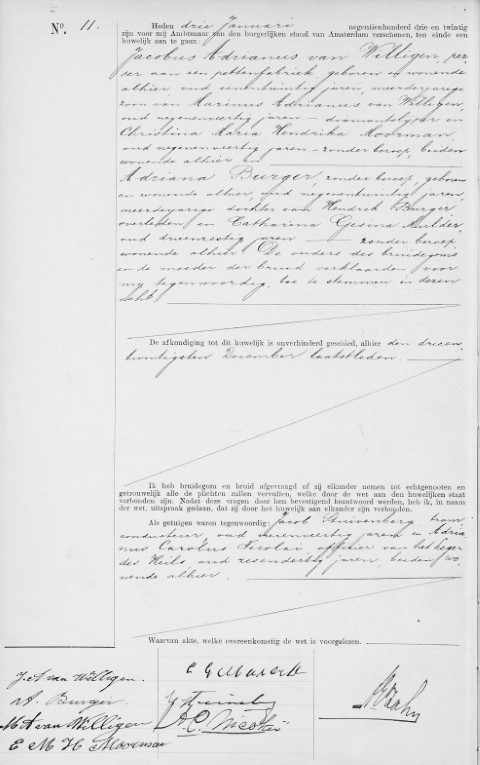 No. 11.
Heden drie Januari negentienhonderd drie en twintig
zijn voor mij Ambtenaar van den burgerlijken stand van Amsterdam verschenen, ten einde een
huwelijk aan te gaan:
Jacobus Adrianus van Willigen, per-
ser aan een pettenfabriek, geboren en wonende
alhier, oud eenentwintig jaren, meerderjarige
zoon van Marinus Adrianus van Willigen,
oud negenenveertig jaren – diamantslijper en
Christina Maria Hendrika Moorman,
oud negenenveertig jaren – zonder beroep, beiden
wonende alhier en
Adriana Burger, zonder beroep, geboren
en wonende alhier, oud negenentwintig jaren,
meerderjarige dochter van Hendrik Burger
overleden en Catharina Gesina Mulder,
oud drieenzestig jaren – zonder beroep
wonende alhier. De ouders des bruidegoms
en de moeder der bruid verklaarden voor
mij tegenwoordig, toe te stemmen in dezen
echt.
De afkondiging tot dit huwelijk is onverhinderd geschied, alhier den drieen
twintigsten December laatstleden.
Ik heb bruidegom en bruid afgevraagd of zij elkander nemen tot echtgenooten en
getrouwelijk alle de plichten zullen vervullen, welke door de wet aan den huwelijken staat
verbonden zijn. Nadat deze vragen door hen bevestigend beantwoord werden, heb ik, in naam
der wet, uitspraak gedaan, dat zij door het huwelijk aan elkander zijn verbonden.
Als getuigen waren tegenwoordig: Jacob Stuivenberg, tram
conducteur, oud jaren en Adria
nus Carolus Nicolai, officier van het Leger
des Heils, oud zesendertig jaren, beiden wo
nende alhier.
Waarvan akte, welke overeenkomstig de wet is voorgelezen.
J. A van Willigen.
A. Burger.
M A van Willigen
C M H Moorman
C G Mulder
A. C. Nicolai